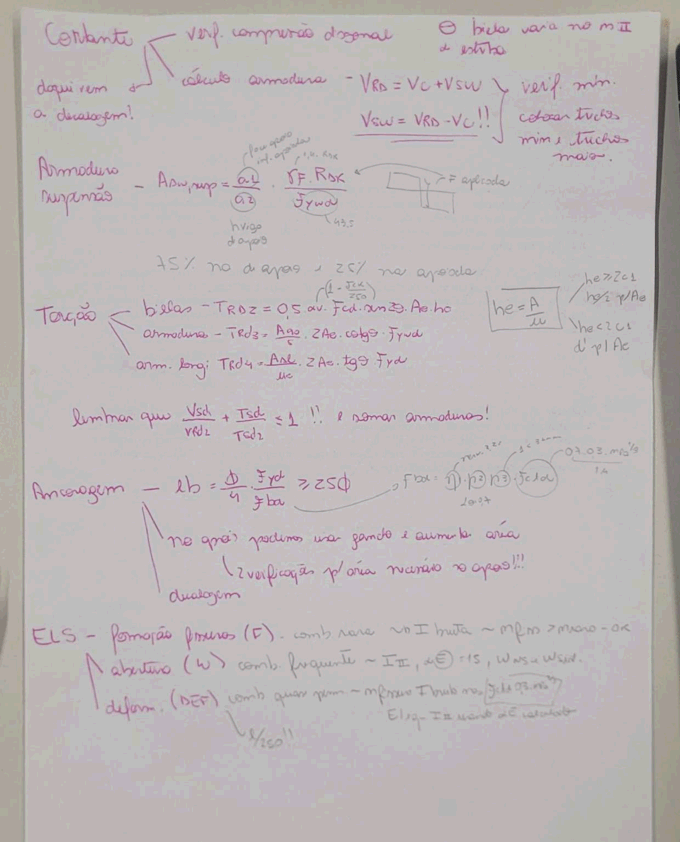 Cortante - verf. compressão diagonal
⊖ biela varia no m II
de estribo
daqui vem
a decalagem!
cálculo armadura - VRD = VC + VSW
VSW = VRD - VC!!
verif. mín.
colocar trechos
min e trechos
maior.
Armadura
suspensão - Asw,susp = a1/a2 · γF.RSK/Fywd
F aplicada
75% no d apoio e 25% na apoiada
Torção
bielas - TRD2 = 0,5 . αv . Fcd . sen2θ . Ae . he
(1 - fck/250)
armadura - TRd3 = A90/s . 2Ae . cotgθ . Fywd
arm. longi TRd4 = Asl/ue . 2Ae . tgθ . Fyd
he = A/u
he ≥ 2c1
he/2 p/Ae
he < 2c1
d' p/Ae
lembrar que Vsd/VRd2 + Tsd/TRd2 ≤ 1 !! e somar armaduras!
Ancoragem - lb = Φ/4 . Fyd/Fbd ≥ 25Φ
Fbd = η1 . η2 . η3 . Fctd
no apoio podemos usar gancho e aumentar área
2 verificações p/ área necessária no apoio!!!
decalagem
ELS - formação fissuras (F). comb rara
abertura (W) comb. frequente ~ I II, αE = 15,
deform. (DEF) comb quase perm
l/250!!